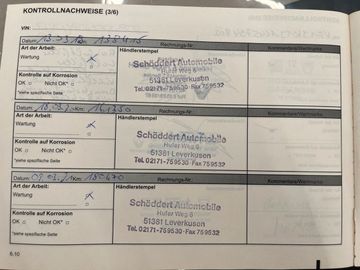 KONTROLLNACHWEISE (3/6)
VIN:
Datum: Km: Rechnungs-Nr.: Kommentare/Wertmarke
Art der Arbeit: Händlerstempel
Wartung x
Schöddert Automobile
Hufer Weg 6
51381 Leverkusen
Tel. 02171-759530 · Fax 759532
Kontrolle auf Korrosion
OK □ Nicht OK* □
*siehe spezifische Seite
Datum: Km: Rechnungs-Nr.: Kommentare/Wertmarke
Art der Arbeit: Händlerstempel
Wartung x
Schöddert Automobile
Hufer Weg 6
51381 Leverkusen
Tel. 02171-759530 · Fax 759532
Kontrolle auf Korrosion
OK □ Nicht OK* □
*siehe spezifische Seite
Datum: Km: 180470 Rechnungs-Nr.: Kommentare/Wertmarke
Art der Arbeit: Händlerstempel
Wartung x
Schöddert Automobile
Hufer Weg 6
51381 Leverkusen
Tel. 02171-759530 · Fax 759532
Kontrolle auf Korrosion
OK □ Nicht OK* □
*siehe spezifische Seite
6.10